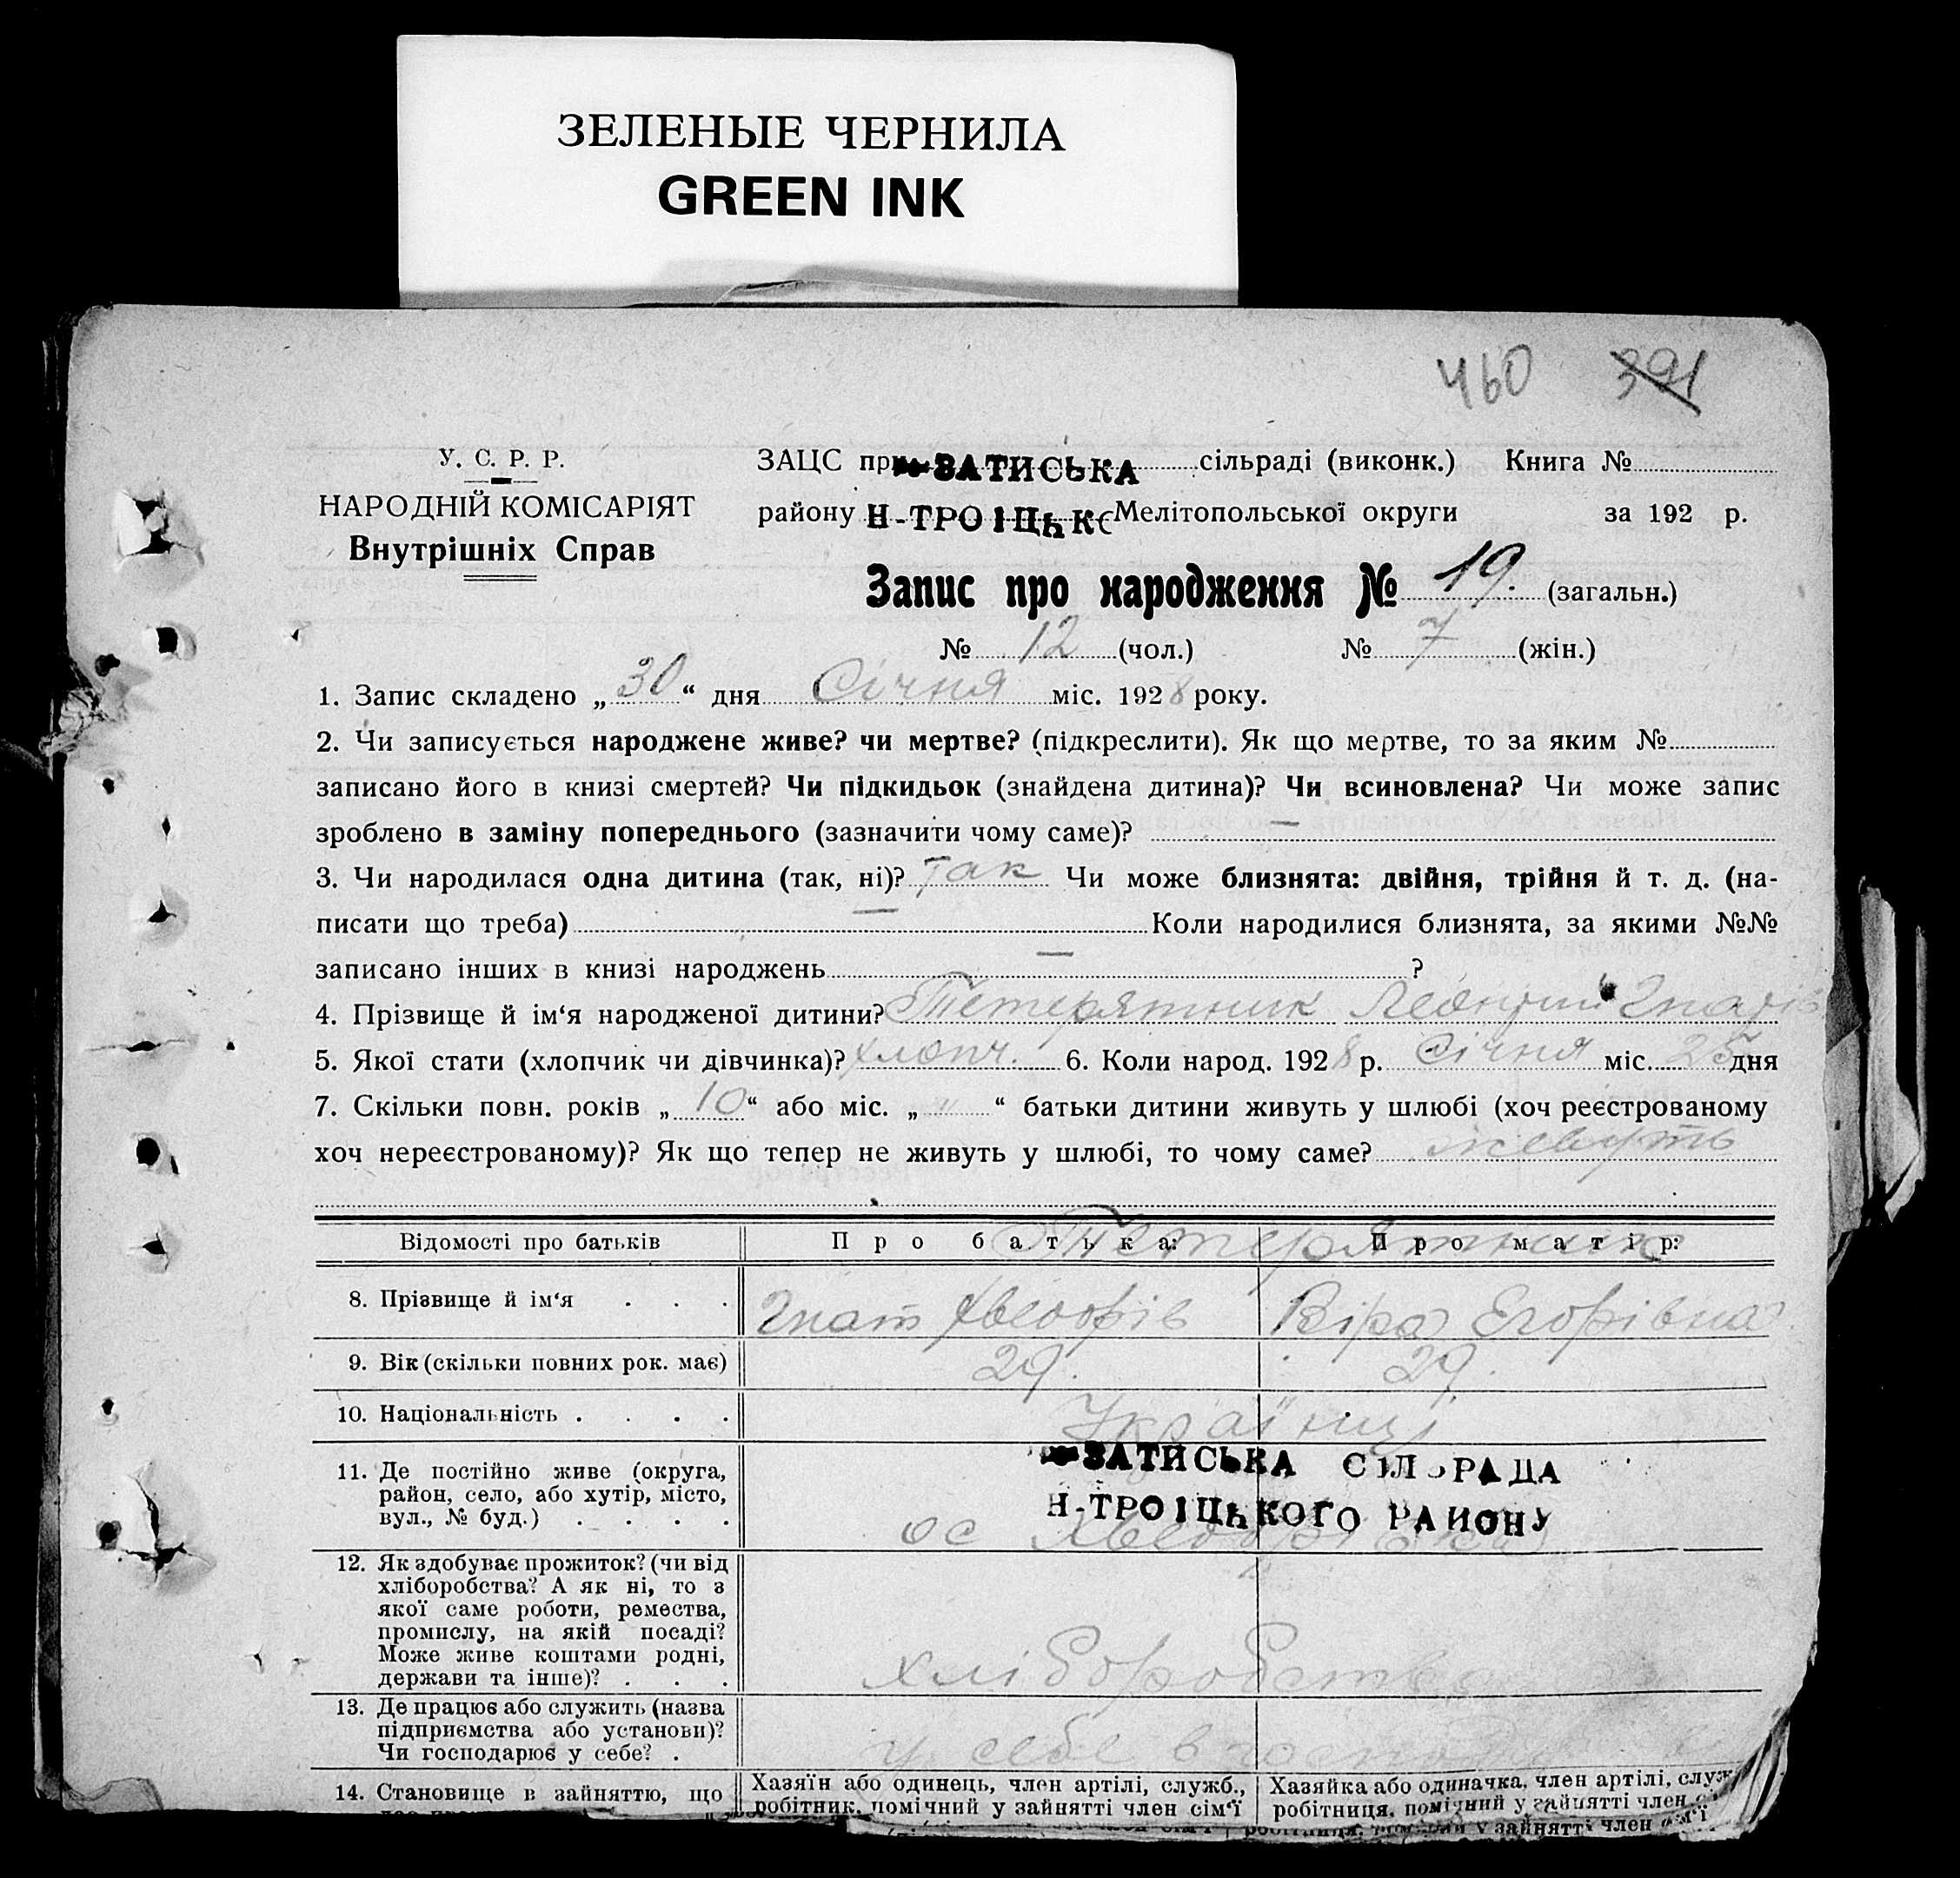 ЗЕЛЕНЫЕ ЧЕРНИЛА
GREEN INK
460 391
У. С. Р. Р.
НАРОДНІЙ КОМІСАРІЯТ
Внутрішніх Справ
ЗАЦС при ЗАТИСЬКА сільраді (виконк.) Книга №
району Н-ТРОІЦЬКЄ Мелітопольської округи за 192 р.
Запис про народження № 19. (загальн.)
№ 12 (чол.) № 7 (жін.)
1. Запис складено „30“ дня Січня міс. 1928 року.
2. Чи записується народжене живе? чи мертве? (підкреслити). Як що мертве, то за яким №
записано його в книзі смертей? Чи підкидьок (знайдена дитина)? Чи всиновлена? Чи може запис
зроблено в заміну попереднього (зазначити чому саме)? —
3. Чи народилася одна дитина (так, ні)? так Чи може близнята: двійня, трійня й т. д. (на-
писати що треба) — Коли народилися близнята, за якими №№
записано інших в книзі народжень — ?
4. Прізвище й ім‘я народженої дитини? Тетерятник Леонтий Гнатів
5. Якої стати (хлопчик чи дівчинка)? хлопч. 6. Коли народ. 1928 р. Січня міс. 25 дня
7. Скільки повн. років „10“ або міс. „ " “ батьки дитини живуть у шлюбі (хоч реєстрованому
хоч нереєстрованому)? Як що тепер не живуть у шлюбі, то чому саме? живуть
Відомості про батьків Про батька: Про матір:
Тетерятник
8. Прізвище й ім‘я . . . Гнат Хведорів Віра Егорівна
9. Вік (скільки повних рок. має) 29. 29.
10. Національність . . . . Українці
11. Де постійно живе (округа,
район, село, або хутір, місто,
вул., № буд.) . . . .
ЗАТИСЬКА СІЛЬРАДА
Н-ТРОІЦЬКОГО РАИОНУ
ос
12. Як здобуває прожиток? (чи від
хліборобства? А як ні, то з
якої саме роботи, ремества,
промислу, на якій посаді?
Може живе коштами родні,
держави та інше)? . . .
хліборобство
13. Де працює або служить (назва
підприємства або установи)?
Чи господарює у себе? .
у себе в
14. Становище в зайняттю, що
Хазяїн або одинець, член артілі, служб.,
робітник, помічний у зайнятті член сім‘ї
Хазяйка або одиначка, член артілі, служ
робітниця, помічний у зайнятті член